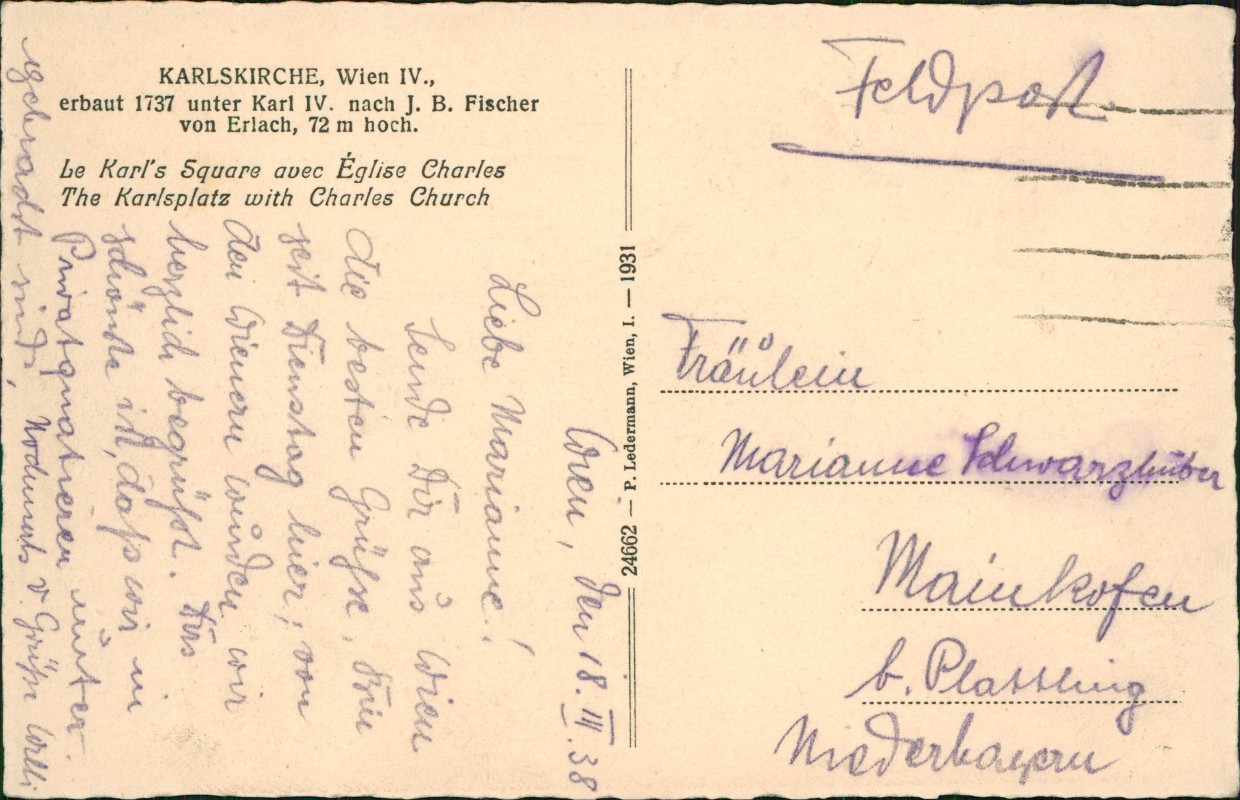 KARLSKIRCHE, Wien IV.,
erbaut 1737 unter Karl IV. nach J. B. Fischer
von Erlach, 72 m hoch.
Le Karl's Square avec Église Charles
The Karlsplatz with Charles Church
Wien, den 18.III.38
Liebe Marianne!
Sende Dir aus Wien
die besten Grüße. Bin
seit Dienstag hier, von
den Wienern wurden wir
herzlich begrüßt. Das
schönste ist, daß wir in
Privatquatieren unter-
gebracht sind. Nochmals v. Grüße Willi
24662 — P. Ledermann, Wien, I. — 1931
Feldpost
Fräulein
Marianne Schwarzhuber
Mainkofen
b. Plattling
Niederbayern